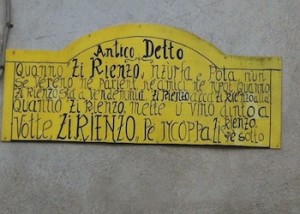 Antico Detto
Quanno Zi Rienzo, nzurfa e Pota, nun
se vereno nè parient nè amice nè nepute. Quanno
Zi Rienzo sta a vendemmia, Zi Rienzo accà Zi Rienzo allà
Quanno Zi Rienzo, mette u vino dint a
votte, Zi Rienzo, Pe ncoppa Zi Rienzo
Pe sotto